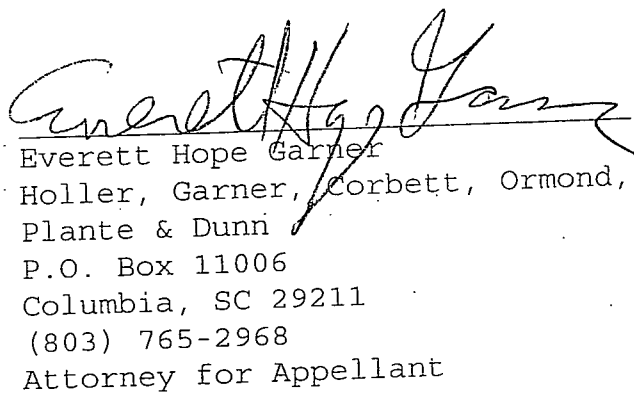 Everett Hope Garner
Everett Hope Garner
Holler, Garner, Corbett, Ormond,
Plante & Dunn
P.O. Box 11006
Columbia, SC 29211
(803) 765-2968
Attorney for Appellant